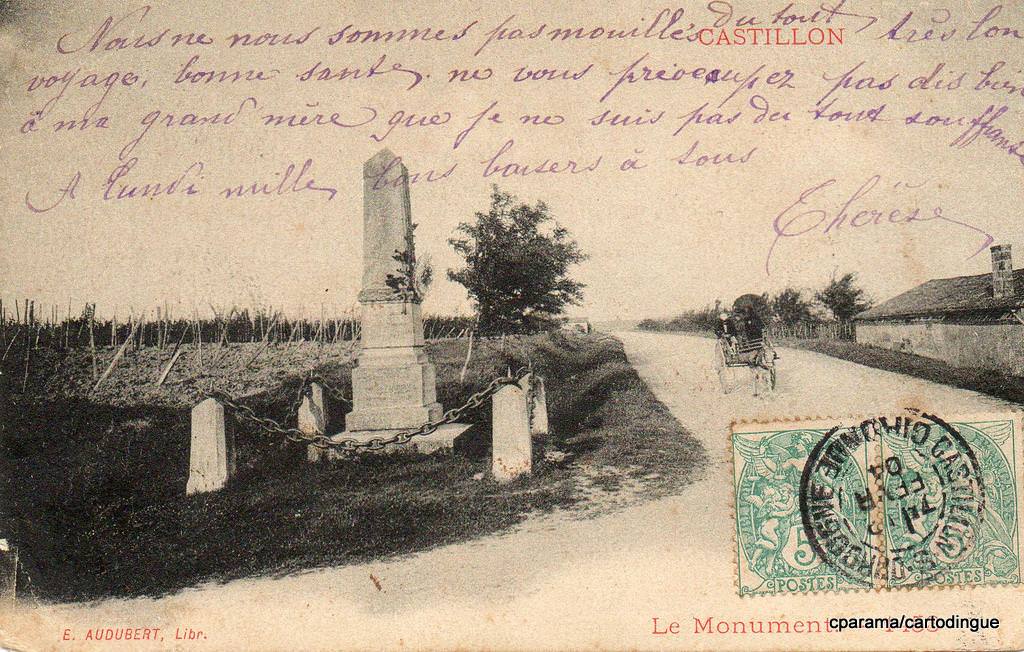 Nous ne nous sommes pas mouillés du tout très bon
CASTILLON
voyage, bonne sante, ne vous préocupez pas dis bien
à ma grand mère que je ne suis pas du tout souffrante
A lundi mille bons baisers à tous
Thérèse
CASTILLON
GIRONDE
FEVR
04
5
POSTES
POSTES
E. AUDUBERT, Libr.
Le Monument
cparama/cartodingue